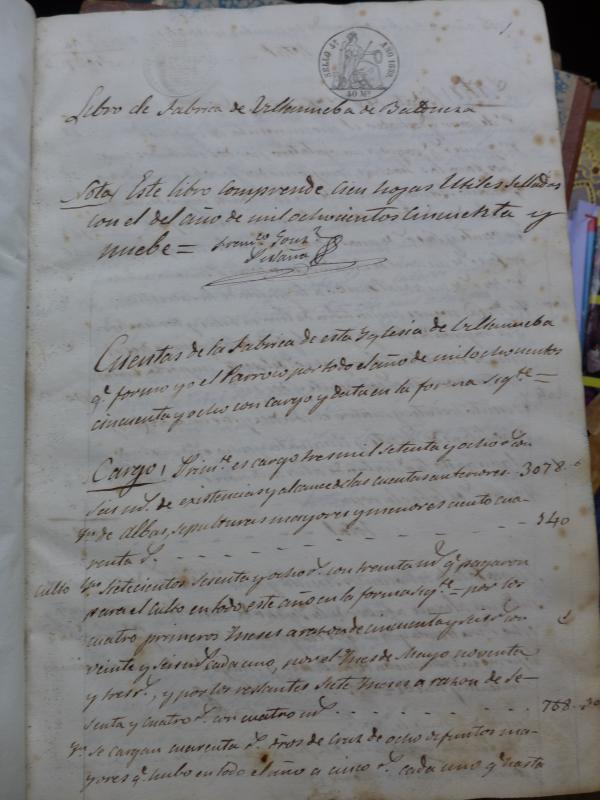 1
SELLO 4º AÑO 1859
40 Ms.
Libro de Fabrica de Villanueba de
Nota, Este libro comprende cien hojas utiles selladas
con el del año de mil ochocientos cincuenta y
nuebe = Franco. Gonz.
Cuentas de la Fabrica de esta Yglesia de Villanueba
q.e formo yo el Parroco por todo el año de mil ochocientos
cincuenta y ocho con cargo y data en la forma sig.te =
Cargo, Prim.te es cargo tres mil setenta y ocho r.s con
seis m.s de existencias y alcance de las cuentas anteriores - 3078 - 6
Yn. de Albas, sepulturas mayores y menores ciento cua-
renta r.s - - - - - - - - - - 140
culto Yn. Setecientos sesenta y ocho r.s con treinta m.s q.e pagaron
para el Culto en todo este año en la forma sig.te = por los
cuatro primeros meses a razon de cincuenta y seis r.s con
veinte y seis m.s cada uno, por el mes de Mayo noventa
y tres r.s, y por los restantes siete meses a razon de se-
senta y cuatro r.s con cuatro m.s - - - - - - 768 - 30
Yn. Se cargan cuarenta r.s dros de Cruz de ocho difuntos ma-
yores q.e hubo en todo el año a cinco r.s cada uno q.e hasta